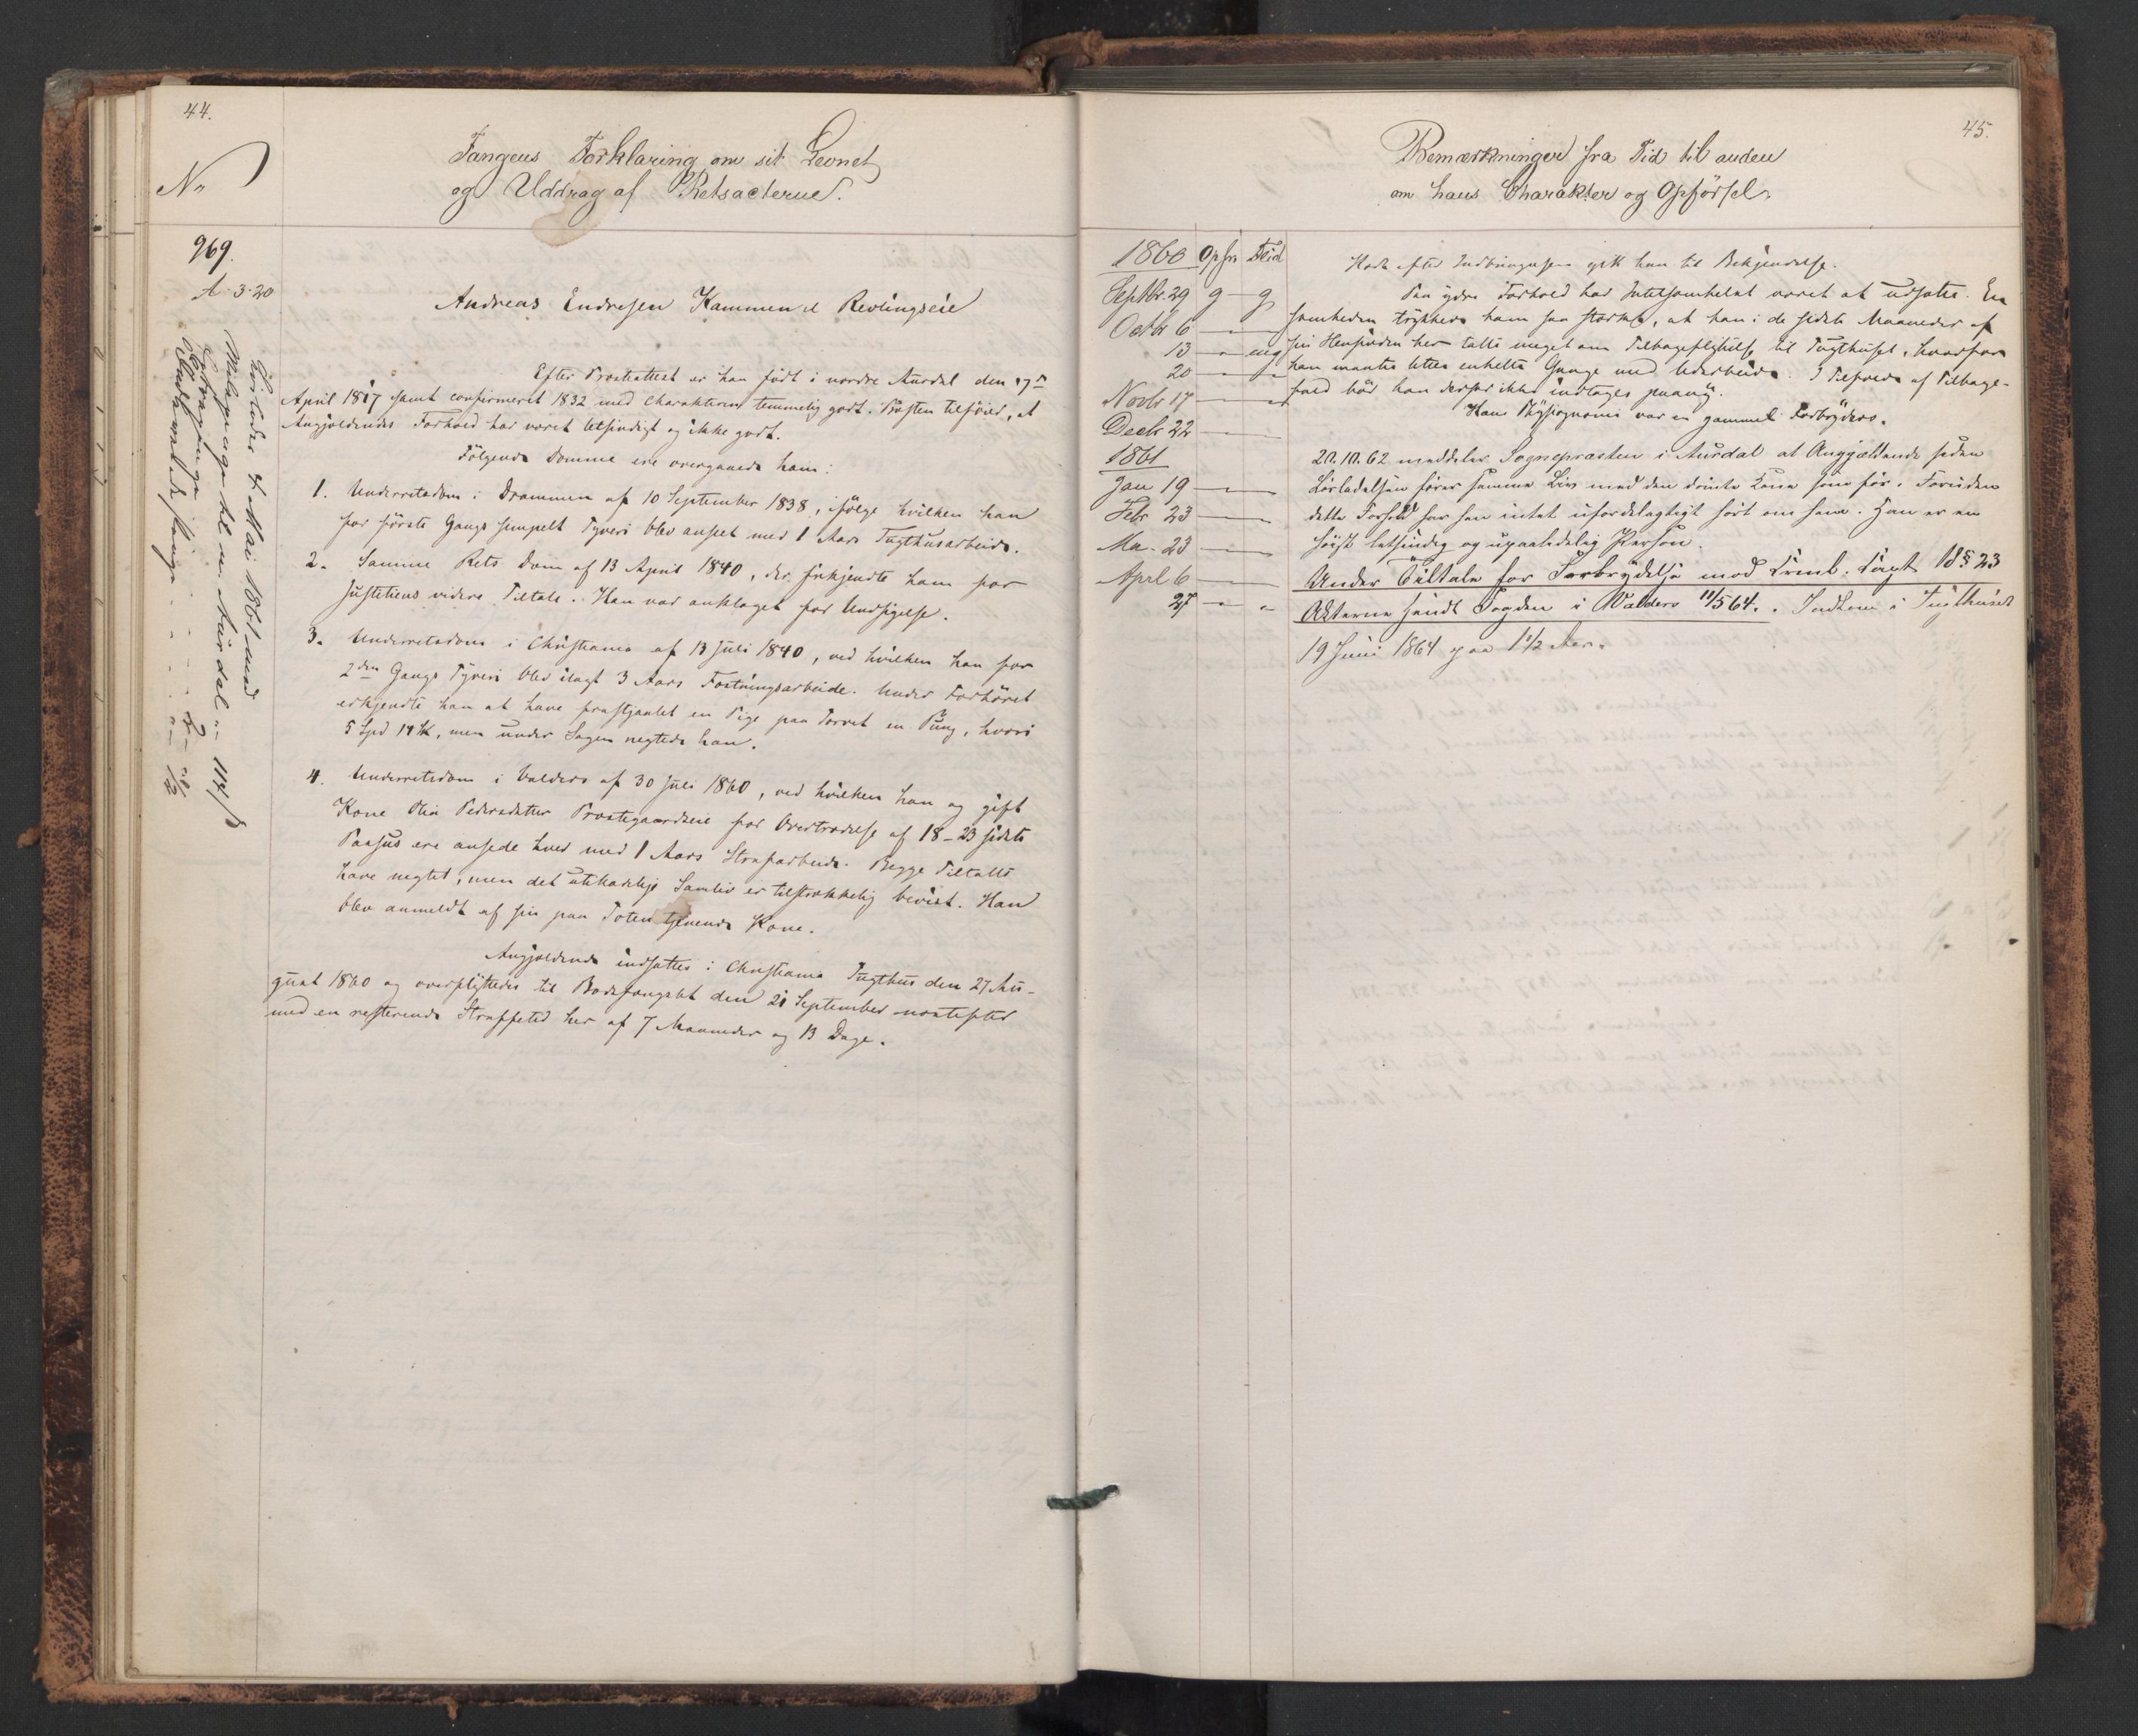 44.
No
Fangens Forklaring om sit Levnet
og Uddrag af Retsacterne.
969.
A. 3. 20
Andreas Endresen Kammen el Revlingseie
Efter Præsteattest er han født i nordre Aurdal den 17de
April 1817 samt confirmeret 1832 med Charakteren temmelig godt. Præsten tilføier, at
Angjældendes Forhold har været letsindigt og ikke godt.
Følgende Domme ere overgaaede ham:
1. Underretsdom i Drammen af 10 September 1838, ifølge hvilken han
for første Gangs simpelt Tyveri blev anseet med 1 Aars Tugthusarbeide.
2. Samme Rets Dom af 13 April 1840, der frikjendte ham for
Justitiens videre Tiltale. Han var anklaget for Undsigelse.
3. Underretsdom i Christiania af 13 Juli 1840, ved hvilken han for
2den Gangs Tyveri blev ilagt 3 Aars Fæstningsarbeide. Under Forhøret
erkjendte han at have frastjaalet en Pige paa Torvet en Pung, hvori
5 Spd 14 sk, men under Sagen negtede han.
4. Underretsdom i Valders af 30 Juli 1860, ved hvilken han og gift
Kone Olia Pedersdatter Præstegaardseie for Overtrædelse af 18-23 sidste
Passus ere ansede hver med 1 Aars Strafarbeide. Begge Tiltalte
have negtet, men det utilladelige Samliv er tilstrækkelig beviist. Han
blev anmeldt af sin paa Toten tjenende Kone.
Angjældende indsattes i Christiania Tugthus den 27 Au-
gust 1860 og overflyttedes til Bodsfængslet den 21 September næstefter
med en resterende Straffetid her af 7 Maaneder og 13 Dage.
Mai 1861 med
til Aurdal
45.
Bemærkninger fra Tid til anden
om hans Charakter og Opførsel.
1860 Opfør Flid
Septbr. 29 g g
Octbr 6 - -
13 - mg
20 - -
Novbr 17 - -
Decbr 22 -
1861
Jan 19 -
Febr 23 -
Ma. 23 -
April 6 -
27 - -
efter Indbringelsen gik han til Bekjendelse.
Paa ydre Forhold har Intetsomhelst været at udsætte. En
somheden trykkede ham saa stærkt, at han i de sidste Maaneder af
sin Henværen her talte meget om Tilbageflyttelse til Tugthuset, hvorfor
han maatte lettes enkelte Gange med Udearbeide. I Tilfælde af Tilbage-
fald bør han derfor ikke indtages paany.
Hans Physiognomi var en gammel Forbryders.
20.10.62 meddeler Sognepræsten i Aurdal at Angjældende siden
Løsladelsen fører samme Liv med den Kone som før. Foruden
dette Forhold har han intet ufordelagtigt hørt om ham. Han er en
høist letsindig og upaalidelig Person.
Under Tiltale for Forbrydelse mod Criml. Capt 18 § 23
Akterne sendt Fogden i Valders 11/5 64. Indkom i Tugthuset
19 Juni 1864 paa 1 1/2 Aar.